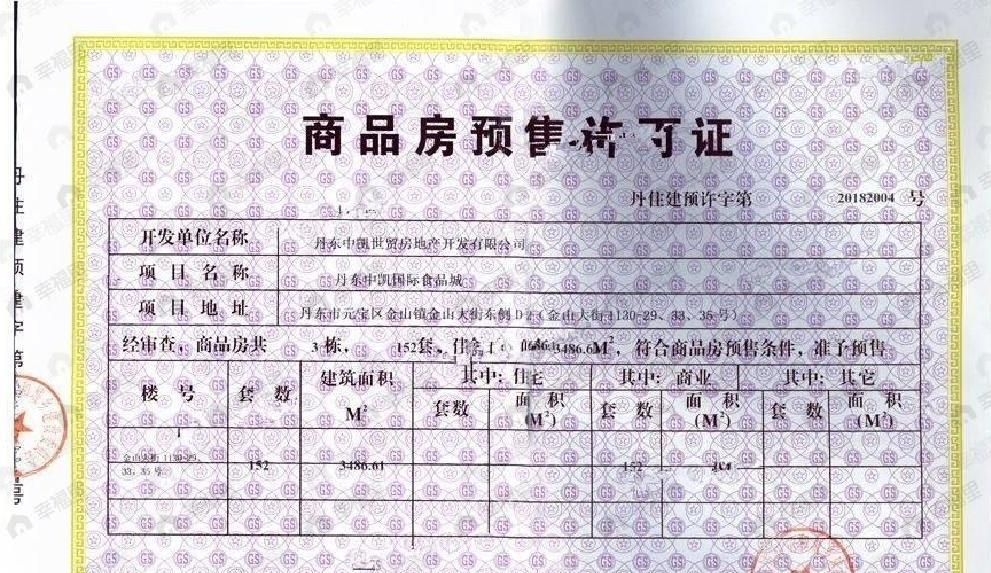 商品房预售许可证
丹住建预许字第 20182004 号
开发单位名称 丹东中凯世贸房地产开发有限公司
项目名称 丹东中凯国际食品城
项目地址 丹东市元宝区金山镇金山大街东侧D2(金山大街1130-29、33、35号)
经审查,商品房共 3栋, 152套, 3486.6M²,符合商品房预售条件,准予预售
楼号 套数 建筑面积 M² 其中:住宅 其中:商业 其中:其它
套数 面积(M²) 套数 面积(M²) 套数 面积(M²)
金山大街1130-29、 152 3486.61 152
33、35号